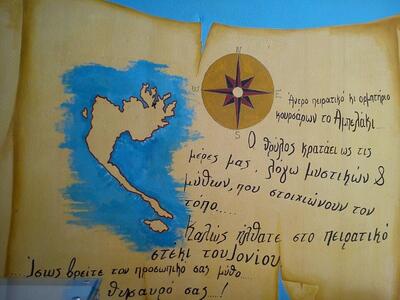 N
W E
S
Άντρο πειρατικό κι ορμητήριο
κουρσάρων το Αμπελάκι
Ο θρύλος κρατάει ως τις
μέρες μας, λόγω μυστικών &
μύθων, που στοιχιώνουν τον
τόπο.....
Καλώς ήλθατε στο πειρατικό
στέκι του Ιονίου
....Ίσως βρείτε τον προσωπικό σας μύθο...
θησαυρό σας....!